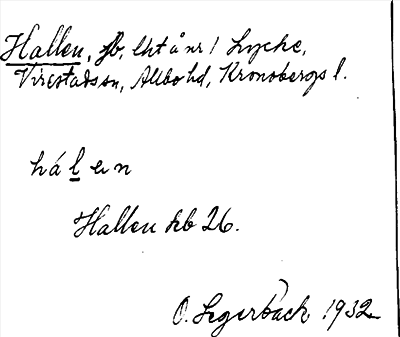 Hallen, fb, lht å nr 1 Lycke,
Virestads sn, Allbo hd, Kronobergs l.
hálen
Hallen kb 26.
O. Segerback 1932